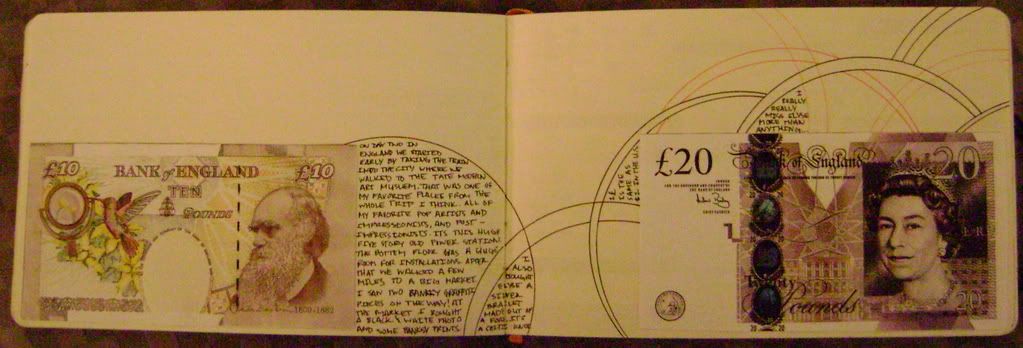 £10
£10
BANK of ENGLAND
TEN
POUNDS
1809-1882
ON DAY TWO IN
ENGLAND WE STARTED
EARLY BY TAKING THE TRAIN
INTO THE CITY WHERE WE
WALKED TO THE TATE MODERN
ART MUSEUM. THAT WAS ONE OF
MY FAVORITE PLACES FROM THE
WHOLE TRIP I THINK. ALL OF
MY FAVORITE POP ARTISTS AND
IMPRESSIONISTS, AND POST-
IMPRESSIONISTS. ITS THIS HUGE
FIVE STORY OLD POWER STATION.
THE BOTTOM FLOOR WAS A HUGE
ROOM FOR INSTALLATIONS. AFTER
THAT WE WALKED A FEW
MILES TO A BIG MARKET.
I SAW TWO BANKSY GRAFFITI
PIECES ON THE WAY! AT
THE MARKET I BOUGHT
A BLACK & WHITE PHOTO
AND SOME BANKSY PRINTS
I
ALSO
BOUGHT
ELSE A
SILVER
MADE OUT OF
A FORK. ITS
A CELTIC KNOT
1£
IS THE
SAME AS
IN THE U.S.
I
REALLY
REALLY
MISS ELSE
MORE THAN
ANYTHING...
£20
Bank of England
20
FOR THE GOVERNOR AND COMPANY OF
THE BANK OF ENGLAND
CHIEF CASHIER
E R
Twenty
Pounds
20